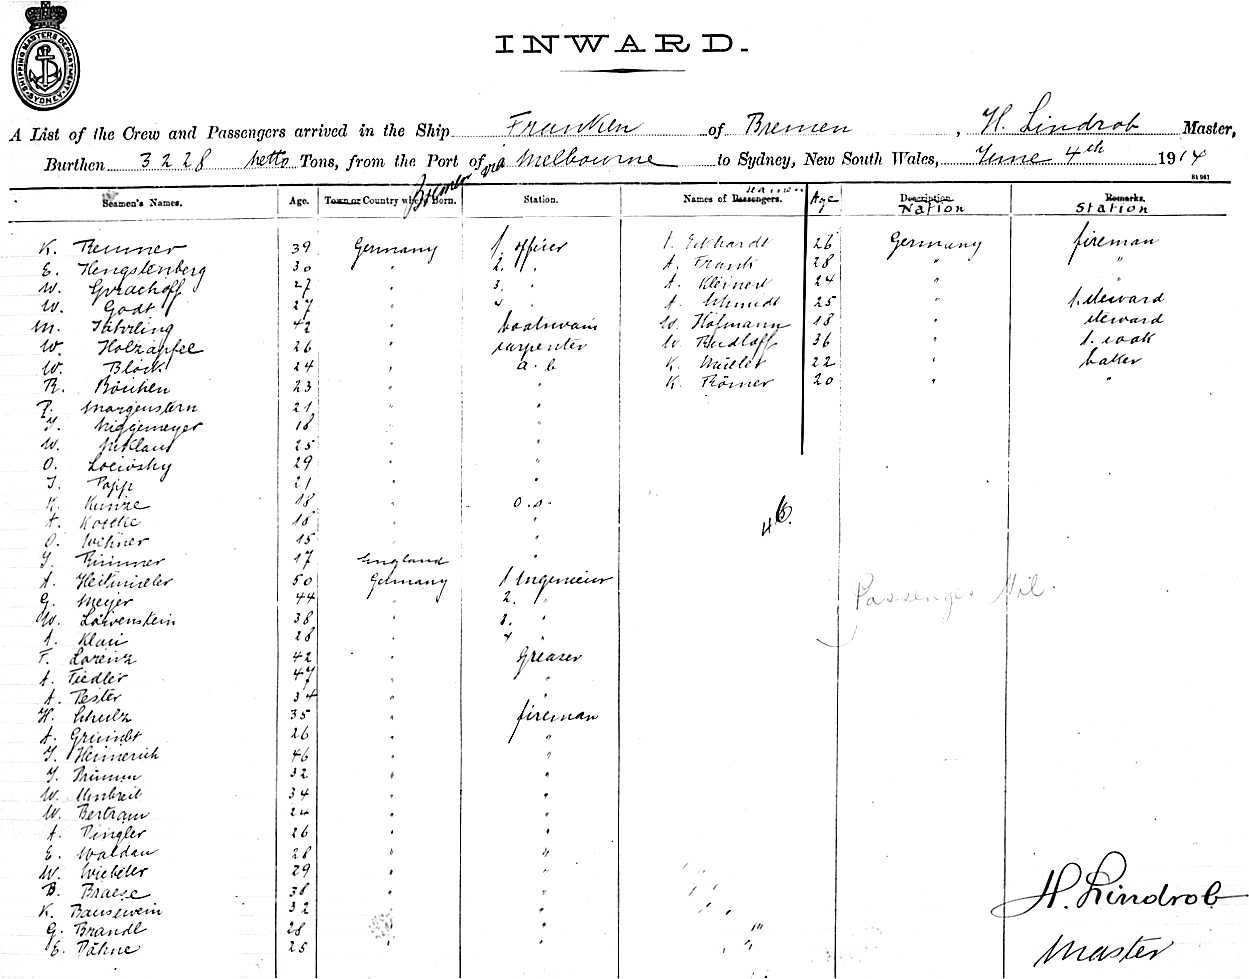 SHIPPING MASTERS DEPARTMENT SYDNEY
INWARD.
A List of the Crew and Passengers arrived in the Ship Franken of Bremen, H. Lindrob Master,
Burthen 3228 netto Tons, from the Port of Bremen via Melbourne to Sydney, New South Wales, June 4th 1914
81961
Seamen's Names. Age. Town or Country where Born. Station. Names of Passengers. seamen Age Description Nation Remarks. Station
K. Remmer 39 Germany 1. officer 1. Eckhardt 26 Germany fireman
E. Hengstenberg 30 " 2. " A. Frank 28 " "
W. Gorachoff 27 " 3. " A. Kleinert 24 " "
W. Godt 27 " 4 " A. Schmidt 25 " 1. steward
M. 42 " boatswain W. Hofmann 18 " steward
W. Holzapfel 26 " carpenter W. Rudloff 36 " 1. cook
W. Block 24 " a. b K. Müller 22 " baker
R. 23 " " K. Römer 20 " "
P. Morgenstern 21 " "
J. Niggemeyer 18 " "
W. 25 " "
O. 29 " "
J. Papp 21 " "
K. Kunze 18 " o. s.
A. 18 " "
O. Wehner 15 " "
J. 17 England "
A. 50 Germany 1 Ingenieur
G. Meyer 44 " 2. "
W. Löwenstein 38 " 3. "
A. 28 " 4 "
F. Lorenz 42 " Greaser
A. Fiedler 47 " "
A. Pester 34 " "
H. Schulz 35 " fireman
A. 26 " "
J. Heinerich 46 " "
J. 32 " "
W. Umbreit 34 " "
W. Bertram 24 " "
A. Dingler 26 " "
E. Waldau 28 " "
W. 29 " "
B. Braese 38 " "
K. Bausewein 32 " "
G. Brandl 28 " "
E. Dähne 25 " "
46.
Passengers Nil.
H. Lindrob
Master